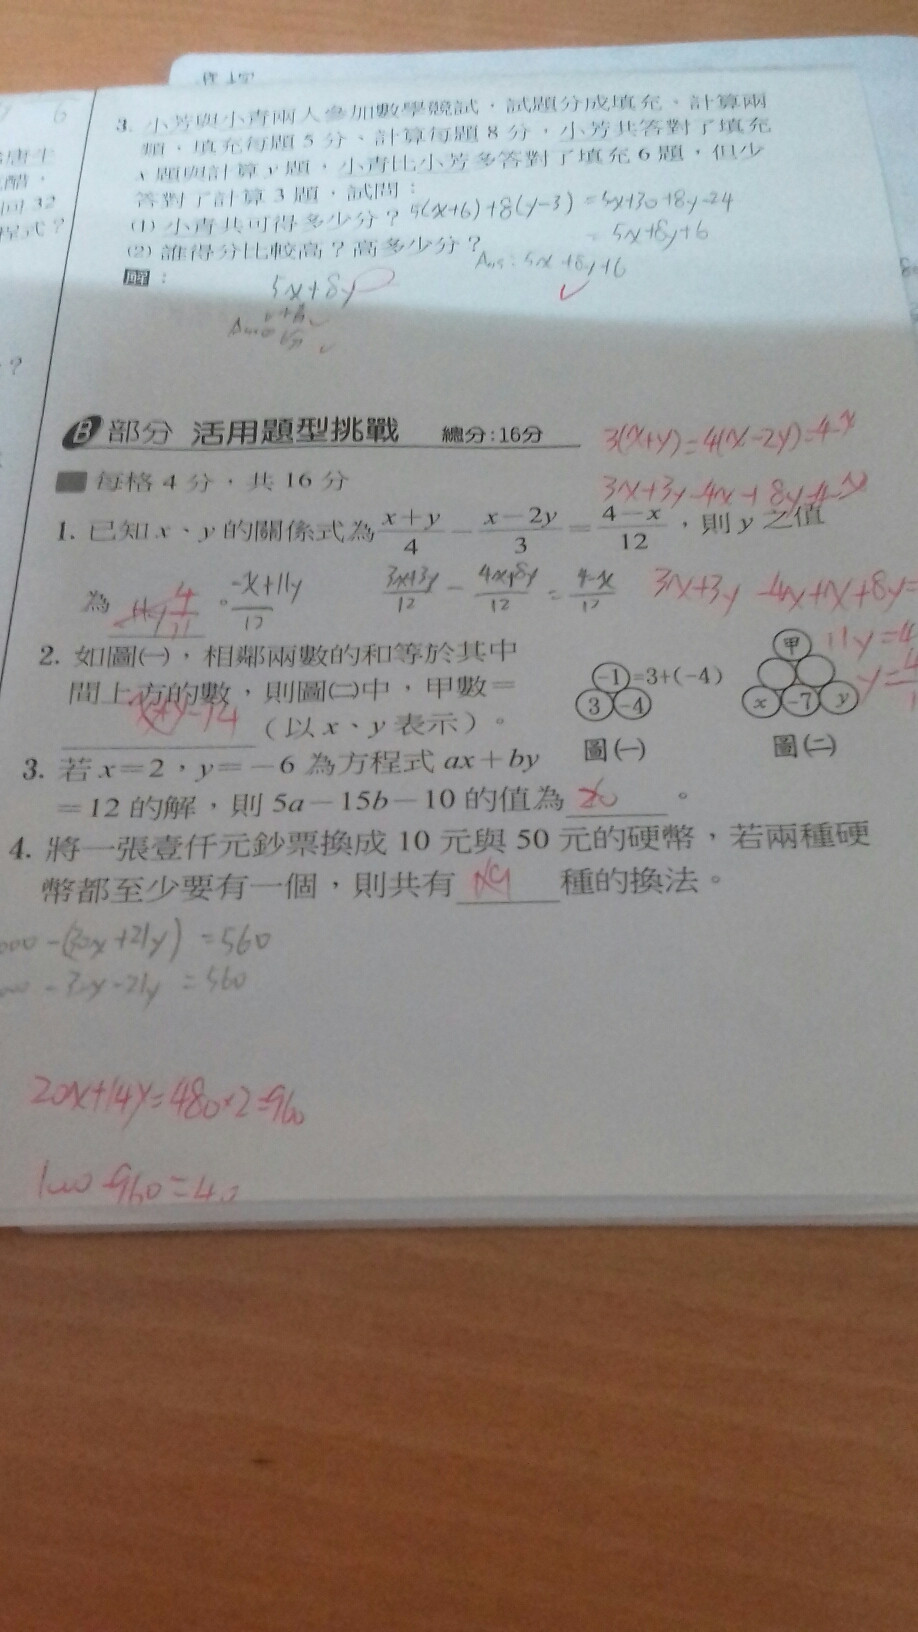 6
3. 小芳與小青兩人參加數學競試，試題分成填充、計算兩
類，填充每題5分、計算每題8分，小芳共答對了填充
x題與計算y題，小青比小芳多答對了填充6題，但少
答對了計算3題，試問：
(1) 小青共可得多少分？ 5(x+6)+8(y-3) =5x+30+8y-24
= 5x+8y+6
(2) 誰得分比較高？高多少分？
Ans: 5x+8y+6
解：
5x+8y
B 部分 活用題型挑戰 總分:16分
3(x+y)=4(x-2y)=4-x
每格4分，共16分
3x+3y-4x+8y=4-x
1. 已知x、y的關係式為 x+y/4 - x-2y/3 = 4-x/12，則y之值
為 4/11。 -x+11y/12
3x+3y/12 - 4x+8y/12 = 4-x/12
3x+3y -4x+x+8y=
11y=4
2. 如圖㈠，相鄰兩數的和等於其中
間上方的數，則圖㈡中，甲數＝
x+y-14（以x、y表示）。
-1 =3+(-4)
3 -4
圖㈠
甲
x -7 y
圖㈡
3. 若x=2，y=-6為方程式ax+by
=12的解，則5a-15b-10的值為 20。
4. 將一張壹仟元鈔票換成10元與50元的硬幣，若兩種硬
幣都至少要有一個，則共有 19 種的換法。
=560
=560
20x+14y=480×2=960